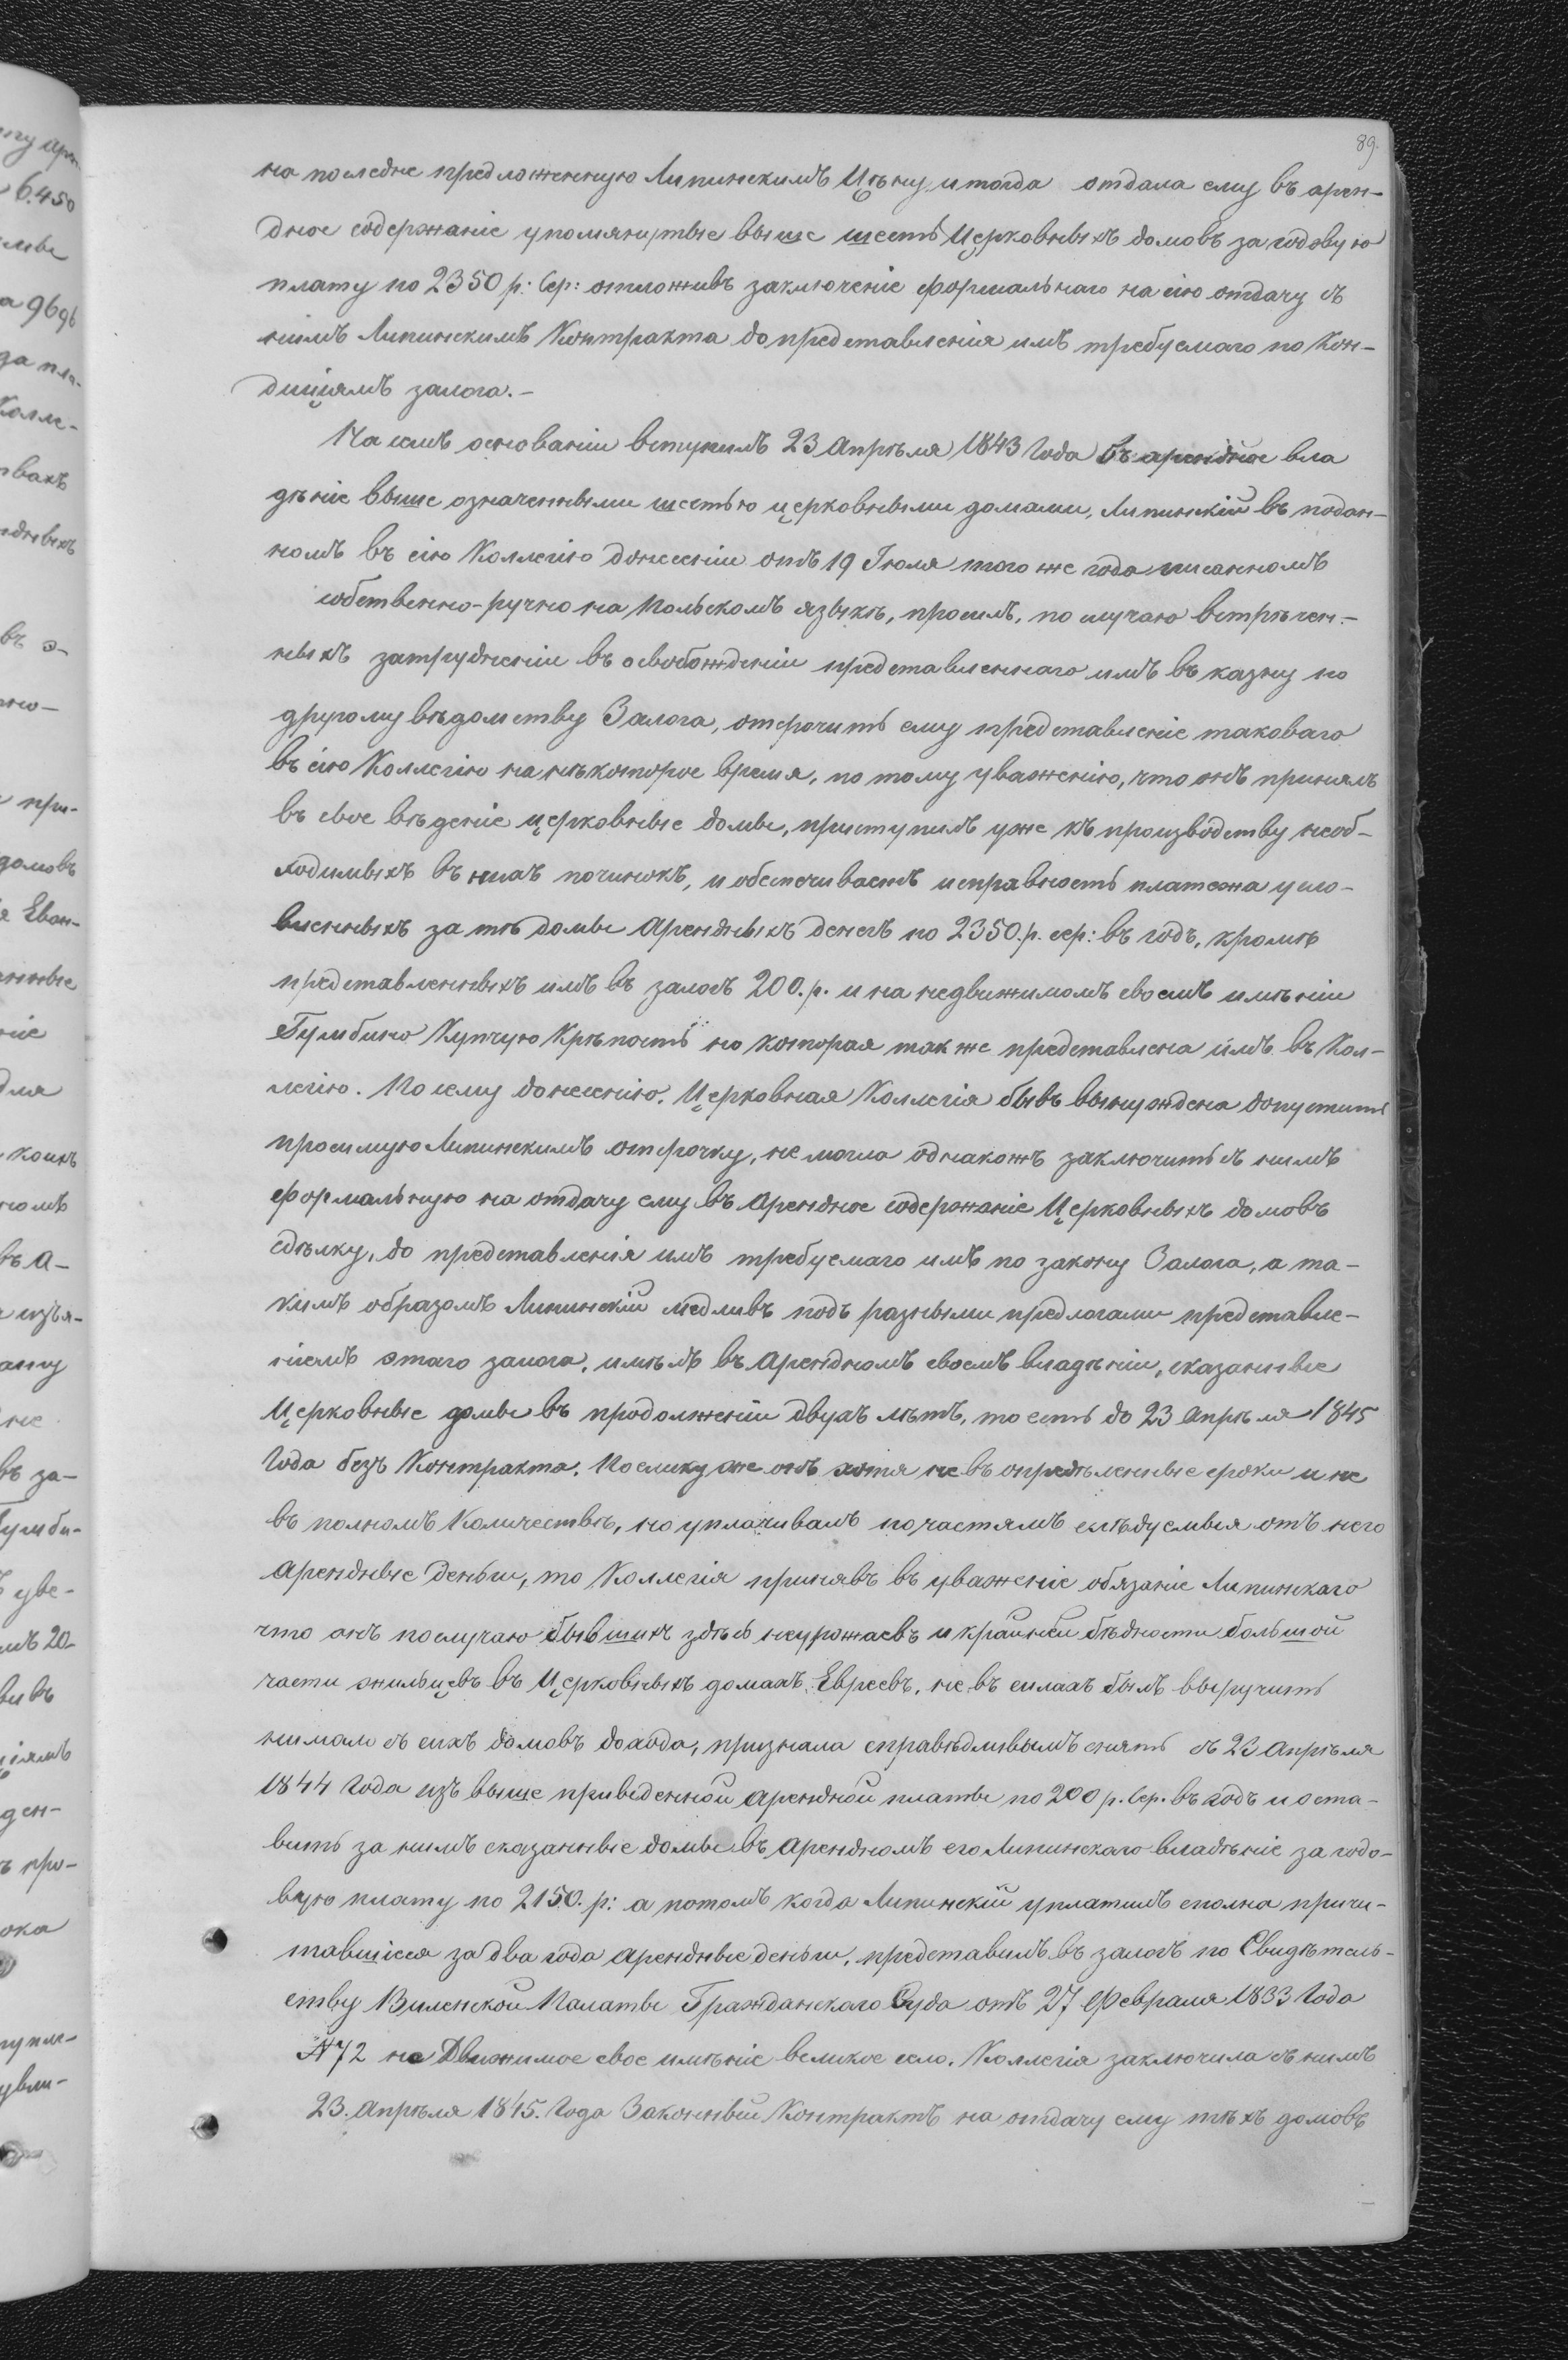 89.
на последне предложенную Липинскимъ Цѣну, и тогда отдала ему въ арен-
дное содержаніе упомянутые выше шесть Церковныхъ домовъ за годовую
плату по 2350 р: Сер: отложивъ заключеніе формальнаго на сію отдачу съ
нимъ Липинскимъ Контракта до представленія имъ требуемаго по Кон-
диціямъ залога.-
На семъ основаніи вступилъ 23 Апрѣля 1843 Года въ арендное вла
дѣніе выше означенными шестью церковными домами, Липинскій въ подан-
номъ въ сію Коллегію донесеніи отъ 19 Іюля того же года писанномъ
собственно-ручно на Польскомъ языкѣ, просилъ, по случаю встрѣчен-
ныхъ затрудненіи въ освобожденіи представленнаго имъ въ казну по
другому вѣдомству Залога, отсрочить ему представленіе таковаго
въ сію Коллегію на нѣкоторое время, по тому уваженію, что онъ принялъ
въ свое вѣденіе церковные домы, приступилъ уже къ производству необ-
ходимыхъ въ нихъ починокъ, и обеспечиваетъ исправность платежа усло-
вленныхъ за тѣ домы Арендныхъ денегъ по 2350.р. сер: въ годъ, кромѣ
представленныхъ имъ въ залогъ 200.р. и на недвижимомъ своемъ имѣніи
Гумбино Купчую Крѣпость но которая также представлена имъ въ Кол-
легію. По сему донесенію, Церковная Коллегія бывъ вынуждена допустить
просимую Липинскимъ отсрочку, не могла однакожъ заключить съ нимъ
формальную на отдачу ему въ Арендное содержаніе Церковныхъ домовъ
сдѣлку, до представленія имъ требуемаго имъ по закону Залога, а та-
кимъ образомъ Липинскій медливъ подъ разными предлогами представле-
ніемъ этаго залога, имѣлъ въ Арендномъ своемъ владѣніи, сказанные
Церковные домы въ продолженіи двухъ лѣтъ, то есть до 23 Апрѣля 1845
Года безъ Контракта. Поелику же онъ хотя не въ опредѣленные сроки и не
въ полномъ Количествѣ, но уплачивалъ по частямъ слѣдуемыя отъ него
Арендные деньги, то Коллегія принявъ въ уваженіе обязаніе Липинскаго
что онъ по случаю бывшихъ здѣсь неурожаевъ и крайней бѣдности большой
части жильцевъ въ Церковныхъ домахъ, Евреевъ, не въ силахъ былъ выручить
нимало съ сихъ домовъ дохода, признала справѣдливымъ снять съ 23 Апрѣля
1844 Года изъ выше приведенной Арендной платы по 200 р. Сер. въ годъ и оста-
вить за нимъ сказанные домы въ Арендномъ его Липинскаго владѣніе за годо-
вую плату по 2150. р: а потомъ когда Липинскій уплатилъ сполна причи-
тавшіеся за два года Арендные деньги, представилъ въ залогъ по Свидѣтель-
ству Виленской Палаты Гражданскаго Суда отъ 27 Февраля 1833 Года
№72 на Движимое свое имѣніе великое село. Коллегія заключила съ нимъ
23. Апрѣля 1845. Года Законный Контрактъ на отдачу ему тѣхъ домовъ